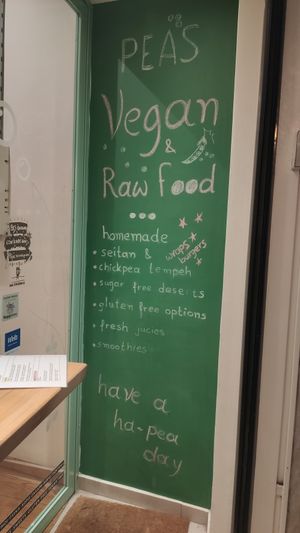 PEAS
Vegan
&
Raw food
...
homemade
• seitan & wraps
burgers
• chickpea tempeh
• sugar free deserts
• gluten free options
• fresh jucies
• smoothies
have a
ha-pea
day